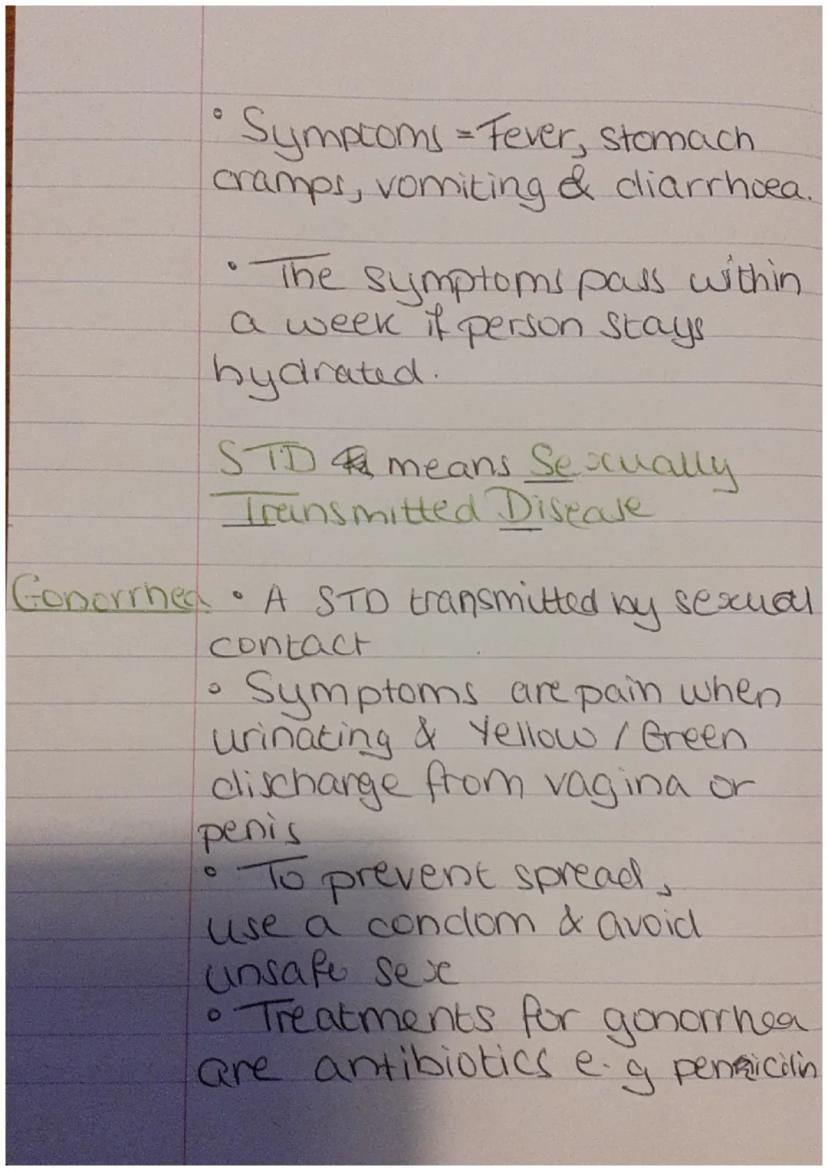 • Symptoms = Fever, stomach
cramps, vomiting & diarrhoea.
• The symptoms pass within
a week if person stays
hydrated.
STD means Sexually
Transmitted Disease
Gonorrhea • A STD transmitted by sexual
contact
• Symptoms are pain when
urinating & Yellow / Green
discharge from vagina or
penis
• To prevent spread,
use a condom & avoid
unsafe sex
• Treatments for gonorrhea
are antibiotics e.g penicilin